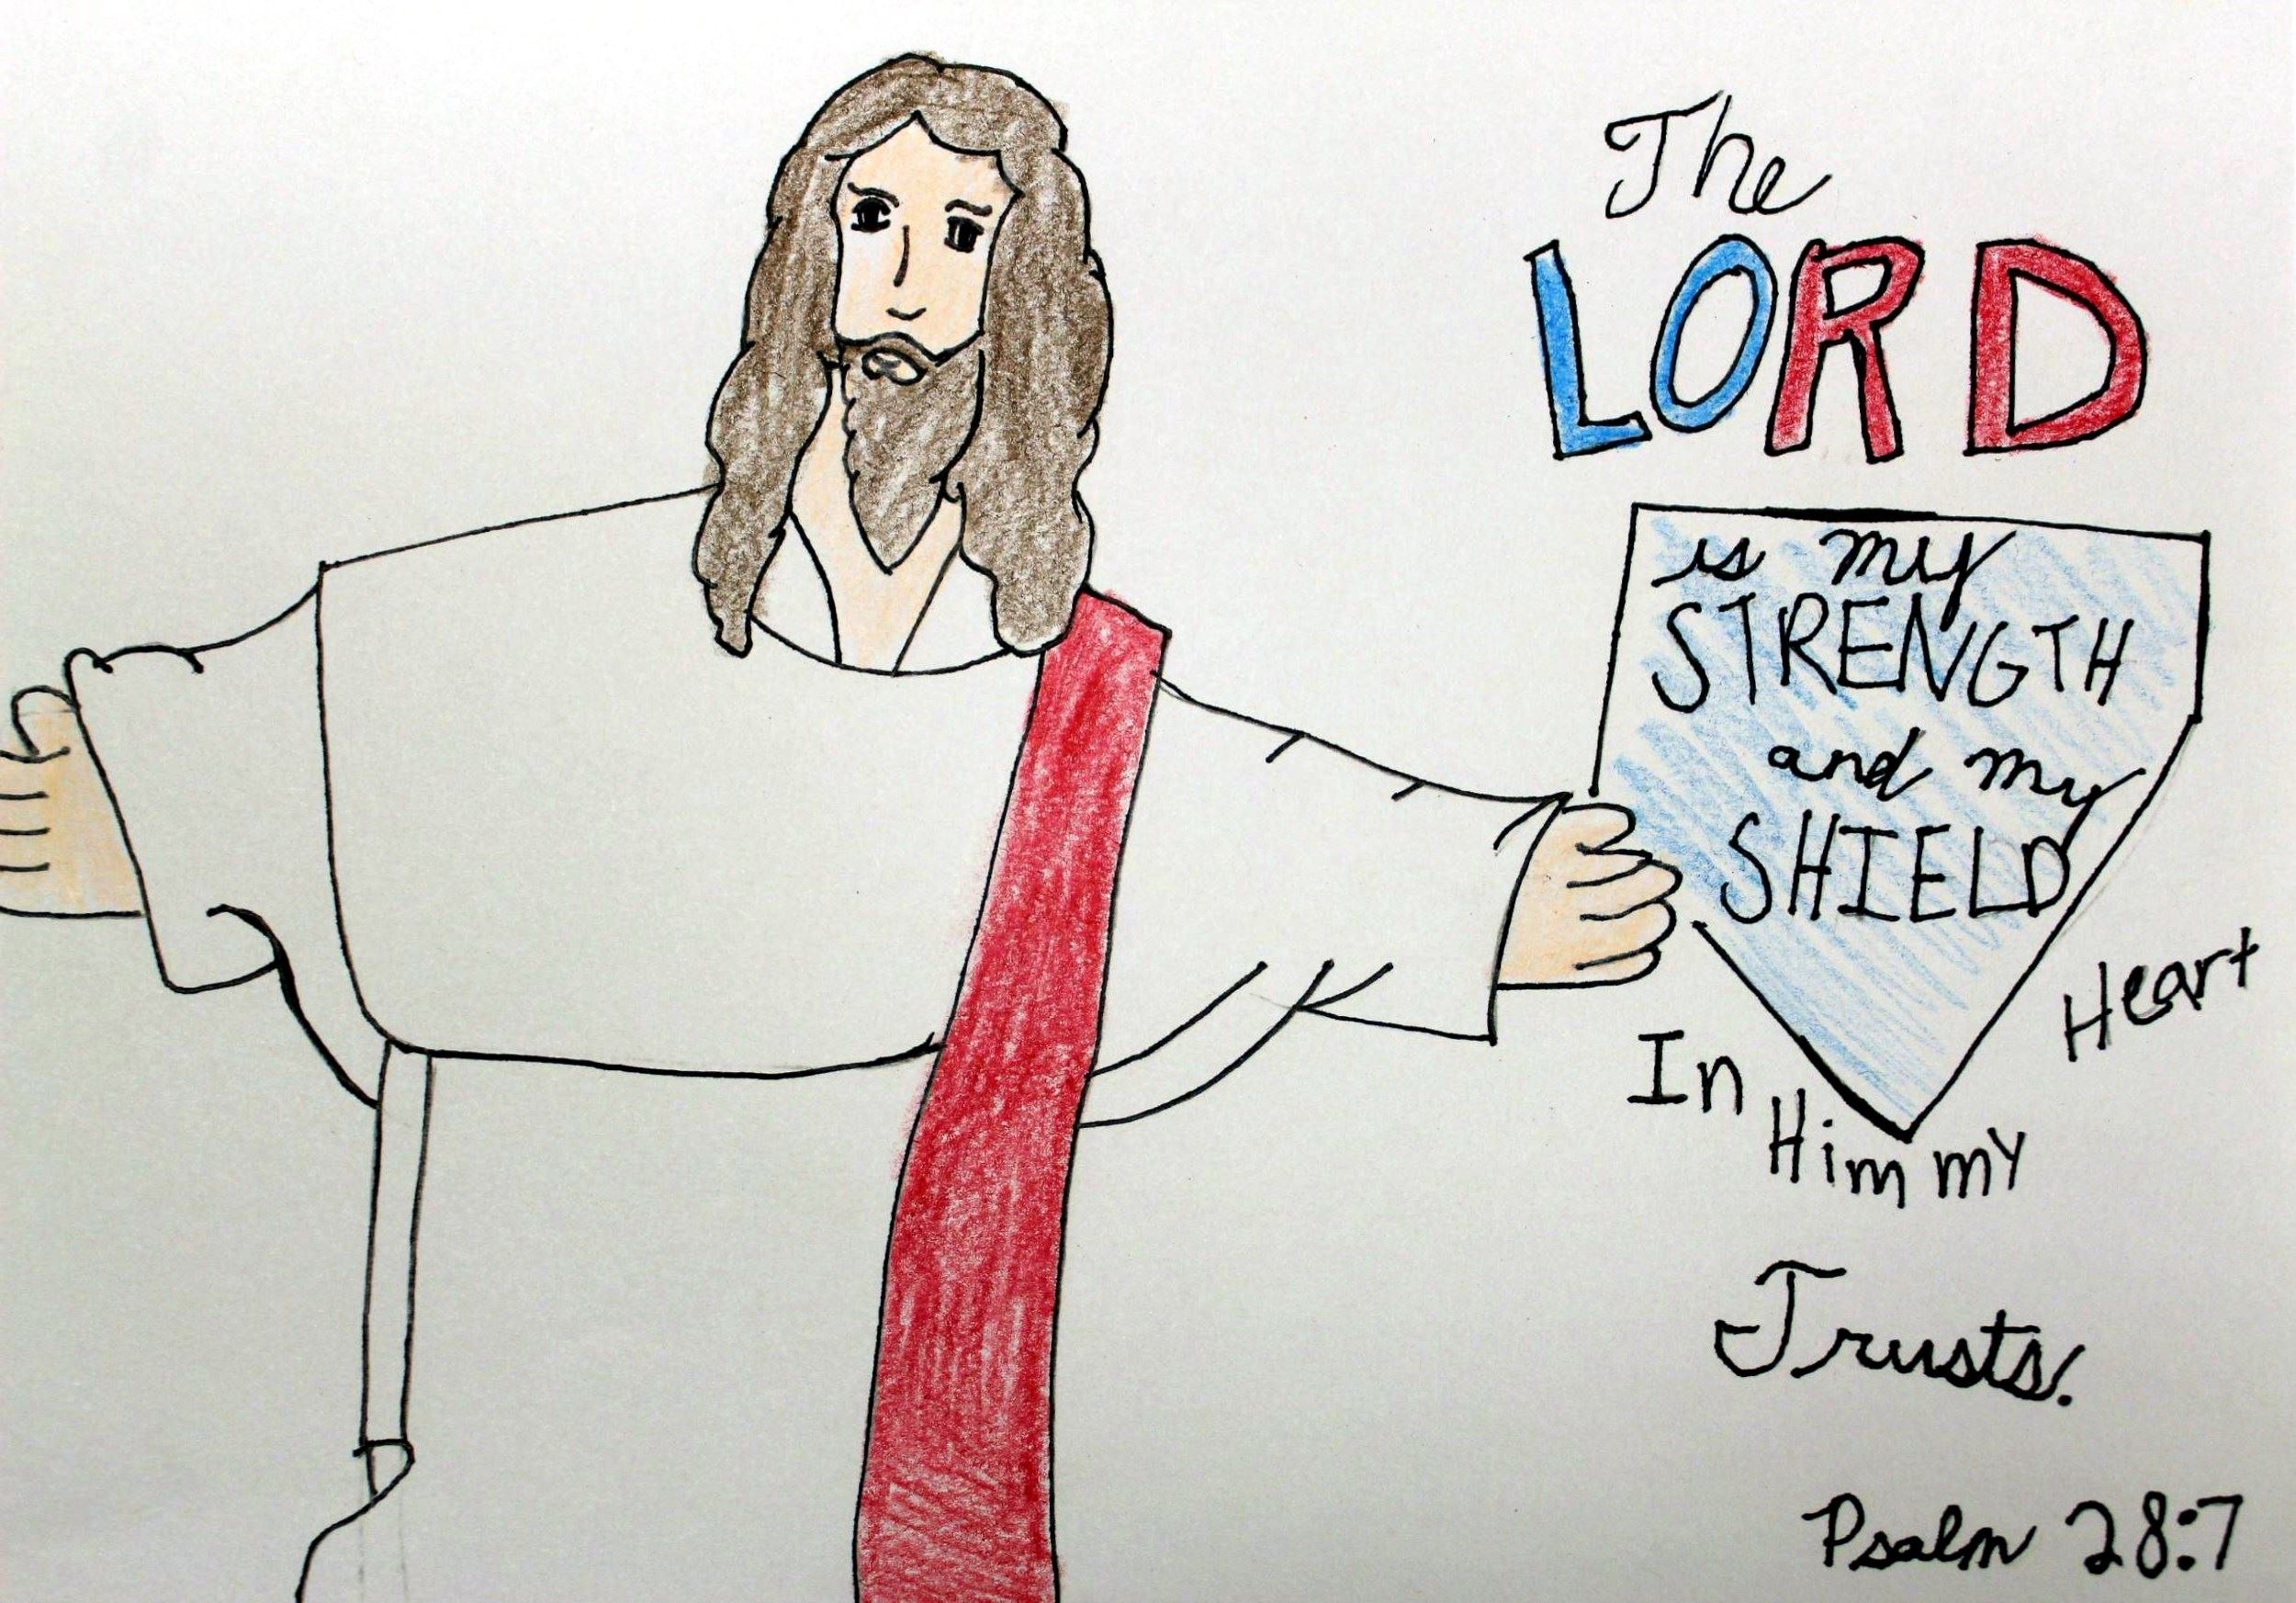 The
LORD
is my
STRENGTH
and my
SHIELD
In Him my Heart
Trusts.
Psalm 28:7